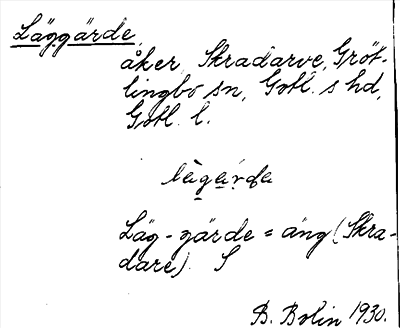 Läggärde,
åker, Skradarve, Gröt-
lingbo sn, Gotl. s hd,
Gotl. l.
lägarda
Läg-gärde = äng (Skra-
dare). S
B. Bolin 1930.